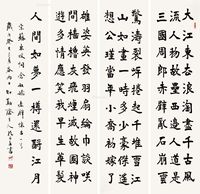 大江東去浪淘盡千古風
流人物故壘西邊人道是
三國周郎赤壁亂石
驚濤裂岸捲起千堆雪江
山如畫一時多少豪傑遙
想公瑾當年小喬初嫁了
雄姿英發羽扇綸巾談笑
間檣櫓灰飛煙滅故國神
遊多情應笑我早生華髮
人間如夢一樽還酹江月
宋蘇東坡詞念奴嬌赤壁懷古